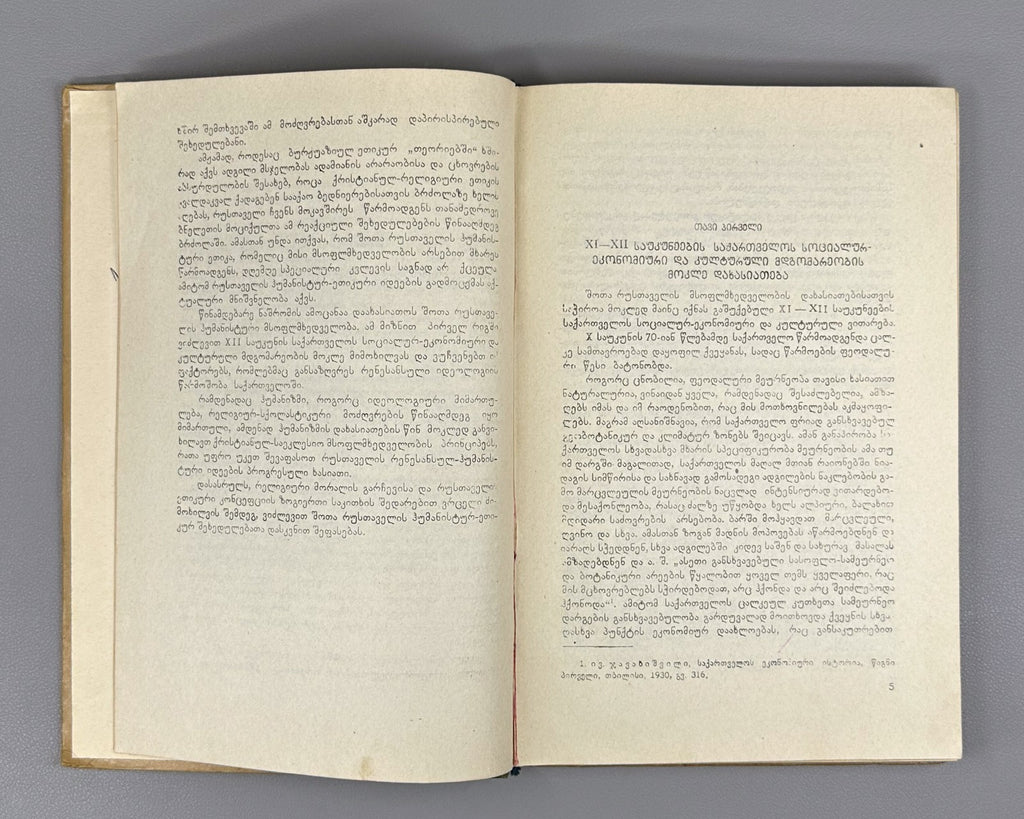 ხშირ შემთხვევაში ამ მოძღვრებასთან აშკარად დაპირისპირებული
შეხედულებანი.
ამჟამად, როდესაც ბურჟუაზიულ ეთიკურ „თეორიებში“ ხში-
რად აქვს ადგილი მსჯელობას ადამიანის არარაობისა და ცხოვრების
აბსურდულობის შესახებ, როცა ქრისტიანულ-რელიგიური ეთიკის
კვალდაკვალ ქადაგებენ სააქაო ბედნიერებისათვის ბრძოლაზე ხელის
აღებას, რუსთაველი ჩვენს მოკავშირეს წარმოადგენს თანამედროვე
ბნელეთის მოციქულთა ამ რეაქციული შეხედულებების წინააღმდეგ
ბრძოლაში. ამასთან უნდა ითქვას, რომ შოთა რუსთაველის ჰუმანის-
ტური ეთიკა, რომელიც მისი მსოფლმხედველობის არსებით მხარეს
წარმოადგენს, დღემდე სპეციალური კვლევის საგნად არ ქცეულა
ამიტომ რუსთაველის ჰუმანისტურ-ეთიკური იდეების გადმოცემას აქ-
ტუალური მნიშვნელობა აქვს.
წინამდებარე ნაშრომის ამოცანაა დაახასიათოს შოთა რუსთავე-
ლის ჰუმანისტური მსოფლმხედველობა. ამ მიზნით პირველ რიგში
ვიძლევით XII საუკუნის საქართველოს სოციალურ-ეკონომიური და
კულტურული მდგომარეობის მოკლე მიმოხილვას და ვუჩვენებთ იმ
ფაქტორებს, რომლებმაც განსაზღვრეს რენესანსული იდეოლოგიის
წარმოშობა საქართველოში.
რამდენადაც ჰუმანიზმი, როგორც იდეოლოგიური მიმართუ-
ლება, რელიგიურ-სქოლასტიკური მოძღვრების წინააღმდეგ იყო
მიმართული, ამდენად ჰუმანიზმის დახასიათების წინ მოკლედ განვი-
ხილავთ ქრისტიანულ-საეკლესიო მსოფლმხედველობის პრინციპებს,
რათა უფრო უკეთ შევაფასოთ რუსთაველის რენესანსულ-ჰუმანის-
ტური იდეების პროგრესული ხასიათი.
დასასრულს, რელიგიური მორალის გარჩევისა და რუსთაველის
ეთიკური კონცეფციის ზოგიერთი საკითხის შედარებით ვრცელი მი-
მოხილვის შემდეგ, ვიძლევით შოთა რუსთაველის ჰუმანისტურ-ეთი-
კურ შეხედულებათა დასკვნით შეფასებას.
თავი პირველი
XI—XII საუკუნეების საქართველოს სოციალურ-
ეკონომიური და კულტურული მდგომარეობის
მოკლე დახასიათება
შოთა რუსთაველის მსოფლმხედველობის დახასიათებისათვის
საჭიროა მოკლედ მაინც იქნას გაშუქებული XI — XII საუკუნეების
საქართველოს სოციალურ-ეკონომიური და კულტურული ვითარება.
X საუკუნის 70-იან წლებამდე საქართველო წარმოადგენდა ცალ-
კე სამთავროებად დაყოფილ ქვეყანას, სადაც წარმოების ფეოდალუ-
რი წესი ბატონობდა.
როგორც ცნობილია, ფეოდალური მეურნეობა თავისი ხასიათით
ნატურალურია, ვინაიდან ყველა, რამდენადაც შესაძლებელია, ამზა-
დებს იმას და იმ რაოდენობით, რაც მის მოთხოვნილებას აკმაყოფი-
ლებს. მაგრამ აღსანიშნავია, რომ საქართველო ფრიად განსხვავებულ
გეობოტანიკურ და კლიმატურ ზონებს შეიცავს. ამან განაპირობა სა-
ქართველოს სხვადასხვა მხარის სპეციფიკურობა მეურნეობის ამა თუ
იმ დარგში. მაგალითად, საქართველოს მაღალ მთიან რაიონებში ნია-
დაგის სიმწირისა და სახნავად გამოსადეგი ადგილების ნაკლებობის გა-
მო მარცვლეულის მეურნეობის ნაცვლად ინტენსიურად ვითარდებო-
და მესაქონლეობა, რასაც ძალზე უწყობდა ხელს ალპიური, ბალახით
მდიდარი საძოვრების არსებობა. ბარში მოჰყავდათ მარცვლეული,
ღვინო და სხვა. ამასთან ზოგან მადნის მოპოვებას აწარმოებდნენ და
იარაღს სჭედდნენ, სხვა ადგილებში კიდევ საშენ და სახურავ მასალას
ამზადებდნენ და ა. შ. „ასეთი განსხვავებული სასოფლო-სამეურნეო
და ბოტანიკური არეების წყალობით ყოველ თემს ყველაფერი, რაც
მის მცხოვრებლებს სჭირდებოდათ, არც ჰქონდა და არც შეიძლებოდა
ჰქონოდა“¹. ამიტომ საქართველოს ცალკეულ კუთხეთა სამეურნეო
დარგების განსხვავებულობა გარდუვალად მოითხოვდა ქვეყნის სხვა-
დასხვა პუნქტის ეკონომიურ დაახლოებას, რაც განსაკუთრებით
1. ივ. ჯავახიშვილი, საქართველოს ეკონომიური ისტორია, წიგნი
პირველი, თბილისი, 1930, გვ. 316.
5